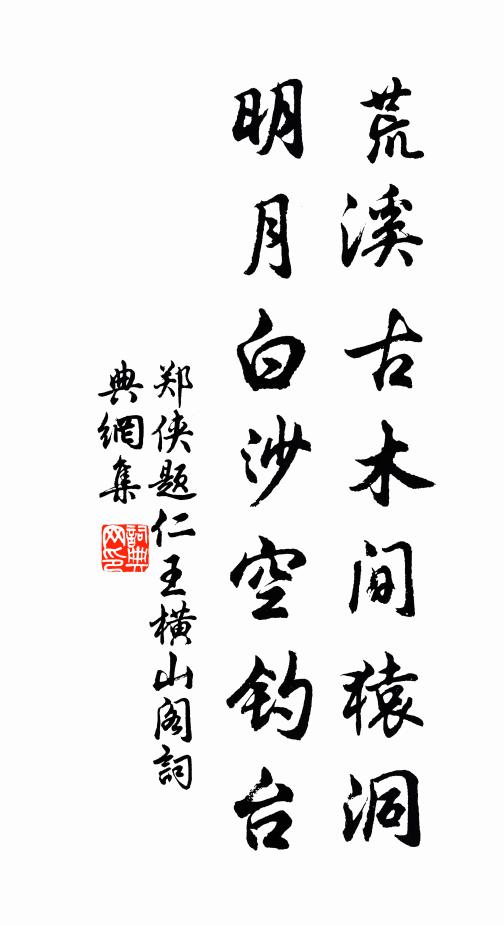 荒溪古木间猿洞
明月白沙空钓台
郑侠题仁王横山阁詞
典網集
詞典
网印